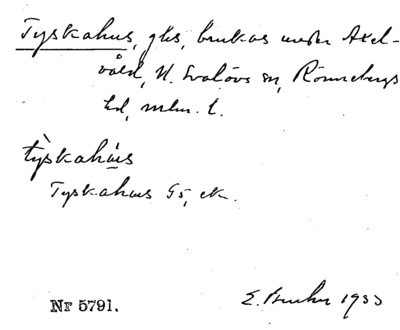 Tyskahus, gds, brukas under Axel-
vold, N. Svalövs sn, Rönnebergs
hd, mlm. l.
tỳskahús
Tyskahus G5, ek.
Nr 5791.
E. Bruhn 1933